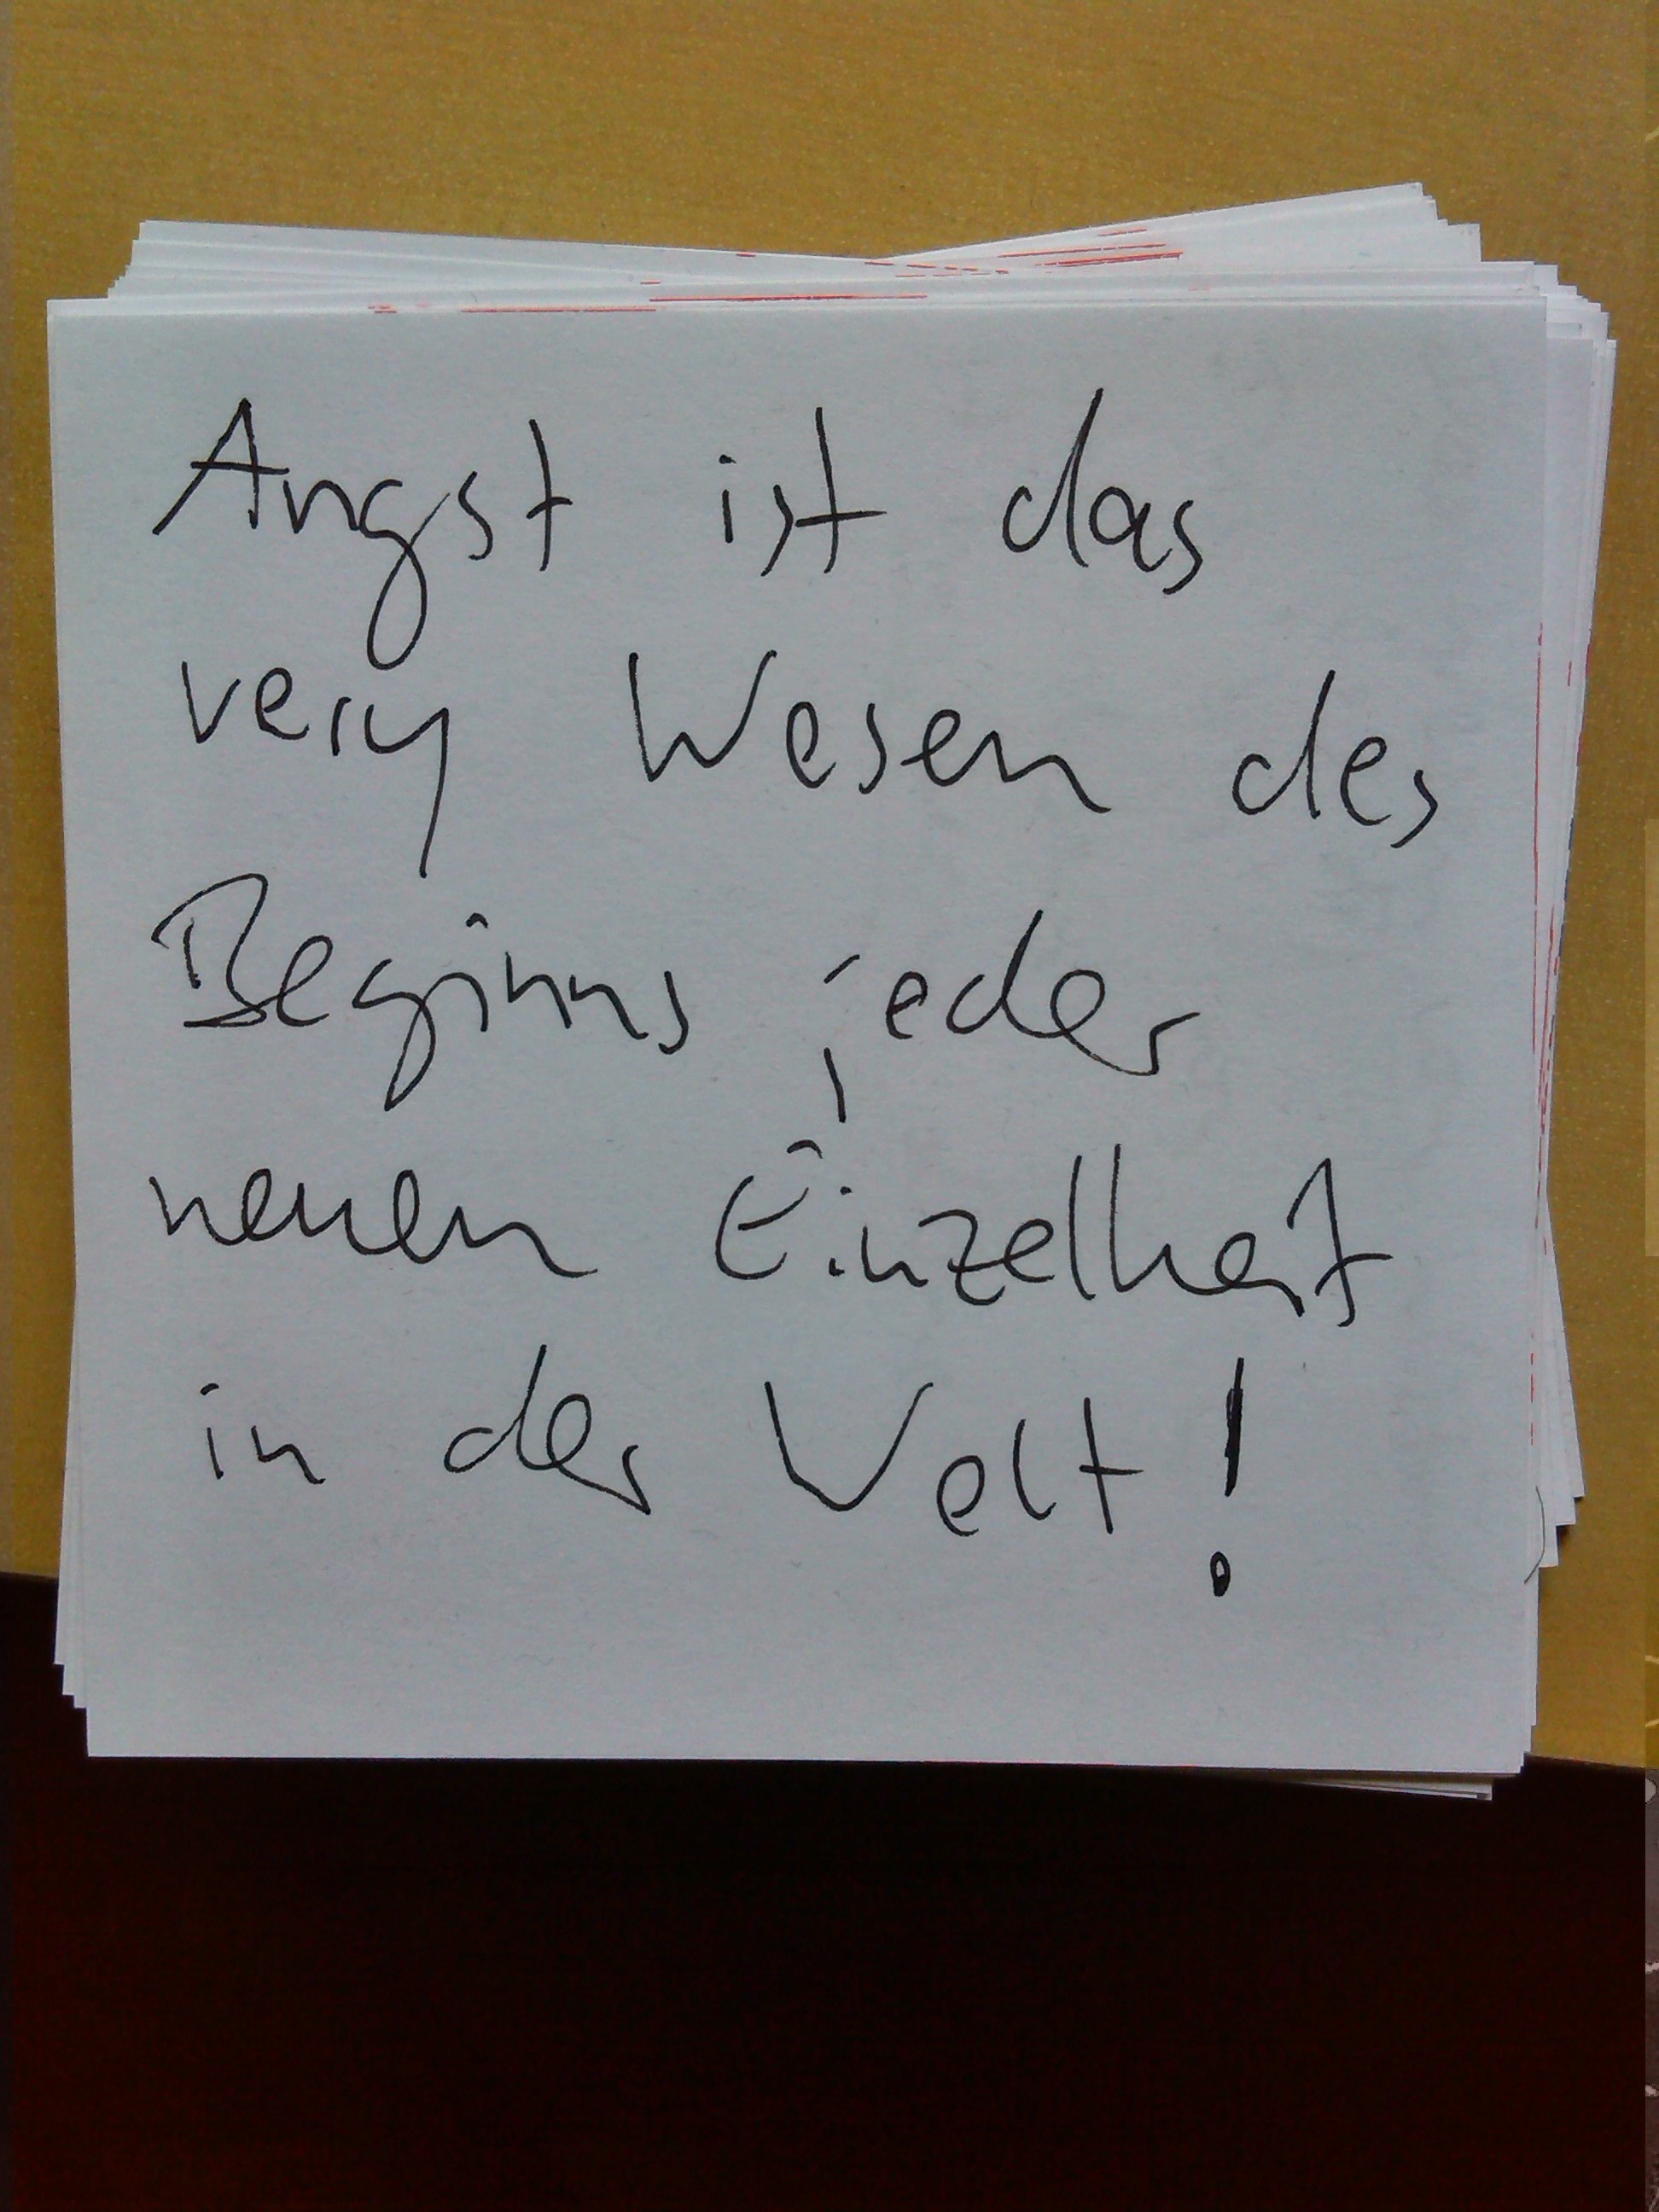 Angst ist das
very Wesen des
Beginns jeder
neuen Einzelheit
in der Welt!